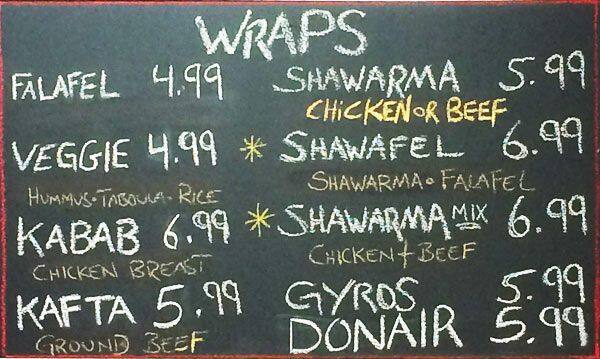 WRAPS
FALAFEL 4.99
VEGGIE 4.99
HUMMUS • TABOULA • RICE
KABAB 6.99
CHICKEN BREAST
KAFTA 5.99
GROUND BEEF
SHAWARMA 5.99
CHICKEN OR BEEF
* SHAWAFEL 6.99
SHAWARMA • FALAFEL
* SHAWARMA MIX 6.99
CHICKEN + BEEF
GYROS 5.99
DONAIR 5.99